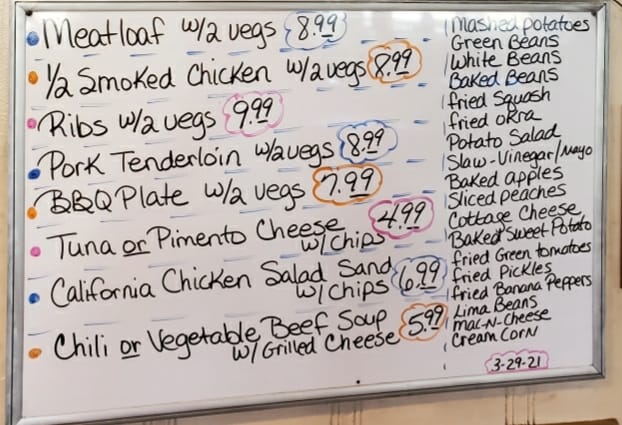 Meatloaf w/2 vegs 8.99
1/2 Smoked Chicken w/2 vegs 8.99
Ribs w/2 vegs 9.99
Pork Tenderloin w/2 vegs 8.99
BBQ Plate w/2 vegs 7.99
Tuna or Pimento Cheese 4.99
w/Chips
California Chicken Salad Sand 6.99
w/Chips
Chili or Vegetable Beef Soup 5.99
w/Grilled Cheese
Mashed potatoes
Green Beans
White Beans
Baked Beans
fried Squash
fried okra
Potato Salad
Slaw-Vinegar/Mayo
Baked apples
Sliced peaches
Cottage Cheese
Baked Sweet Potato
fried Green tomatoes
fried Pickles
fried Banana Peppers
Lima Beans
mac-N-Cheese
Cream Corn
3-29-21